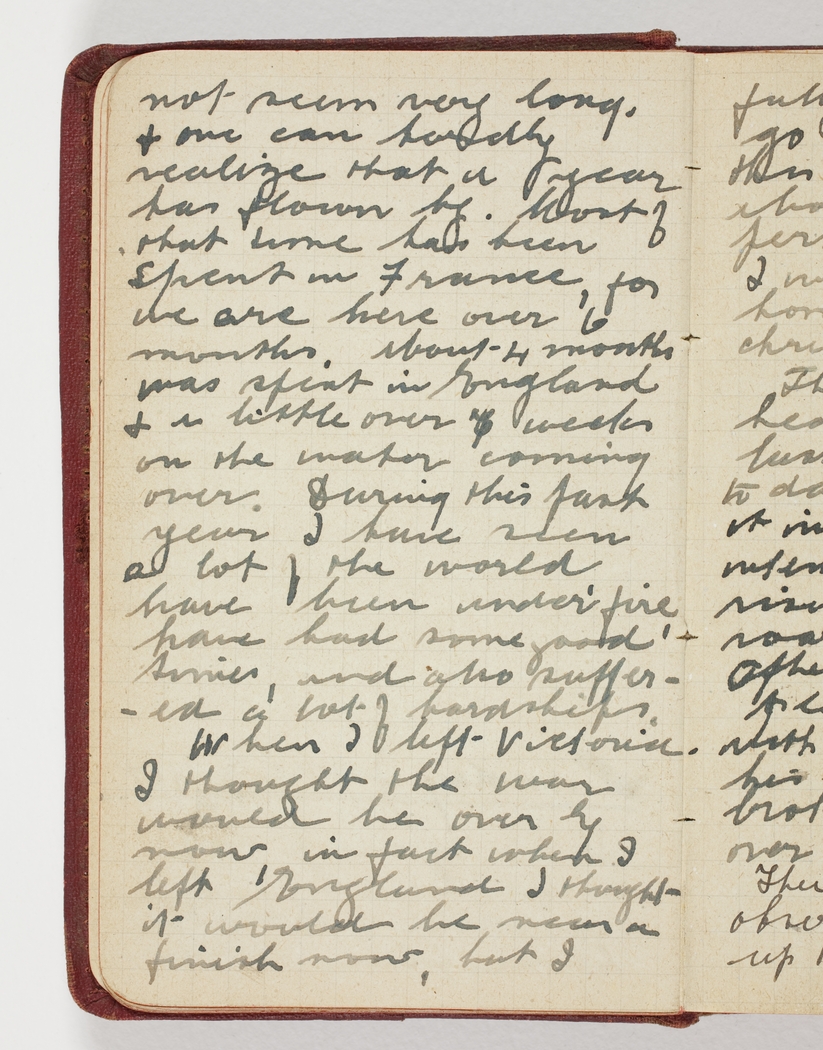 not seem very long.
& one can hardly
realize that a year
has flown by. Most of
that time has been
spent in France, for
we are here over 6
months. about 4 months
was spent in England
& a little over 7 weeks
on the water coming
over. During this past
year I have seen
a lot of the world
have been under fire,
have had some good
times, and also suffer-
-ed a lot of hardships.
When I left Victoria.
I thought the war
would be over by
now, in fact when I
left England I thought
it would be near a
finish now, but I
go
I
to
it
over
up